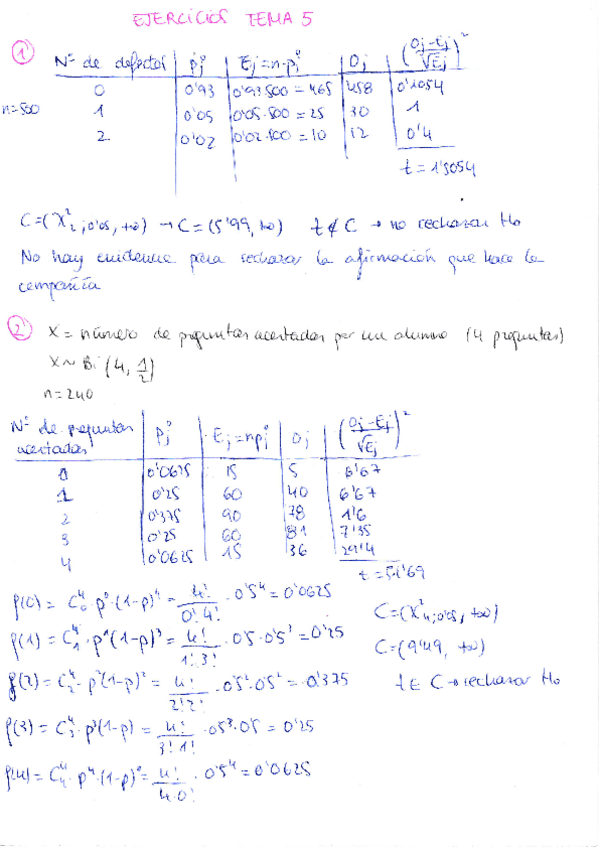 EJERCICIOS TEMA 5
1) Nº de defectos | Pjº | Ej=n·pjº | Oj | ((Oj-Ej)/√Ej)²
0 | 0'93 | 0'93·500=465 | 458 | 0'1054
n=500 1 | 0'05 | 0'05·500=25 | 30 | 1
2 | 0'02 | 0'02·500=10 | 12 | 0'4
t=1'5054
C=(χ²2;0'05, +∞) → C=(5'99, +∞) t∉C → no rechazar Ho
No hay evidencia para rechazar la afirmación que hace la
compañía
2) X = número de preguntas acertadas por un alumno (4 preguntas)
X~Bi(4, 1/2)
n=240
Nº de preguntas acertadas | Pjº | Ej=npjº | Oj | ((Oj-Ej)/√Ej)²
0 | 0'0625 | 15 | 5 | 6'67
1 | 0'25 | 60 | 40 | 6'67
2 | 0'375 | 90 | 78 | 1'6
3 | 0'25 | 60 | 81 | 7'35
4 | 0'0625 | 15 | 36 | 29'4
t=51'69
p(0) = C⁴0·p⁰·(1-p)⁴ = 4!/(0!·4!) · 0'5⁴ = 0'0625
C=(χ²4;0'05, +∞)
p(1) = C⁴1·p¹(1-p)³ = 4!/(1!·3!) · 0'5·0'5³ = 0'25
C=(9'49, +∞)
p(2) = C⁴2·p²(1-p)² = 4!/(2!2!) · 0'5²·0'5² = 0'375
t∈C → rechazar Ho
p(3) = C⁴3·p³(1-p) = 4!/(3!1!) · 0'5³·0'5 = 0'25
p(4) = C⁴4·p⁴·(1-p)⁰ = 4!/(4·0!) · 0'5⁴ = 0'0625